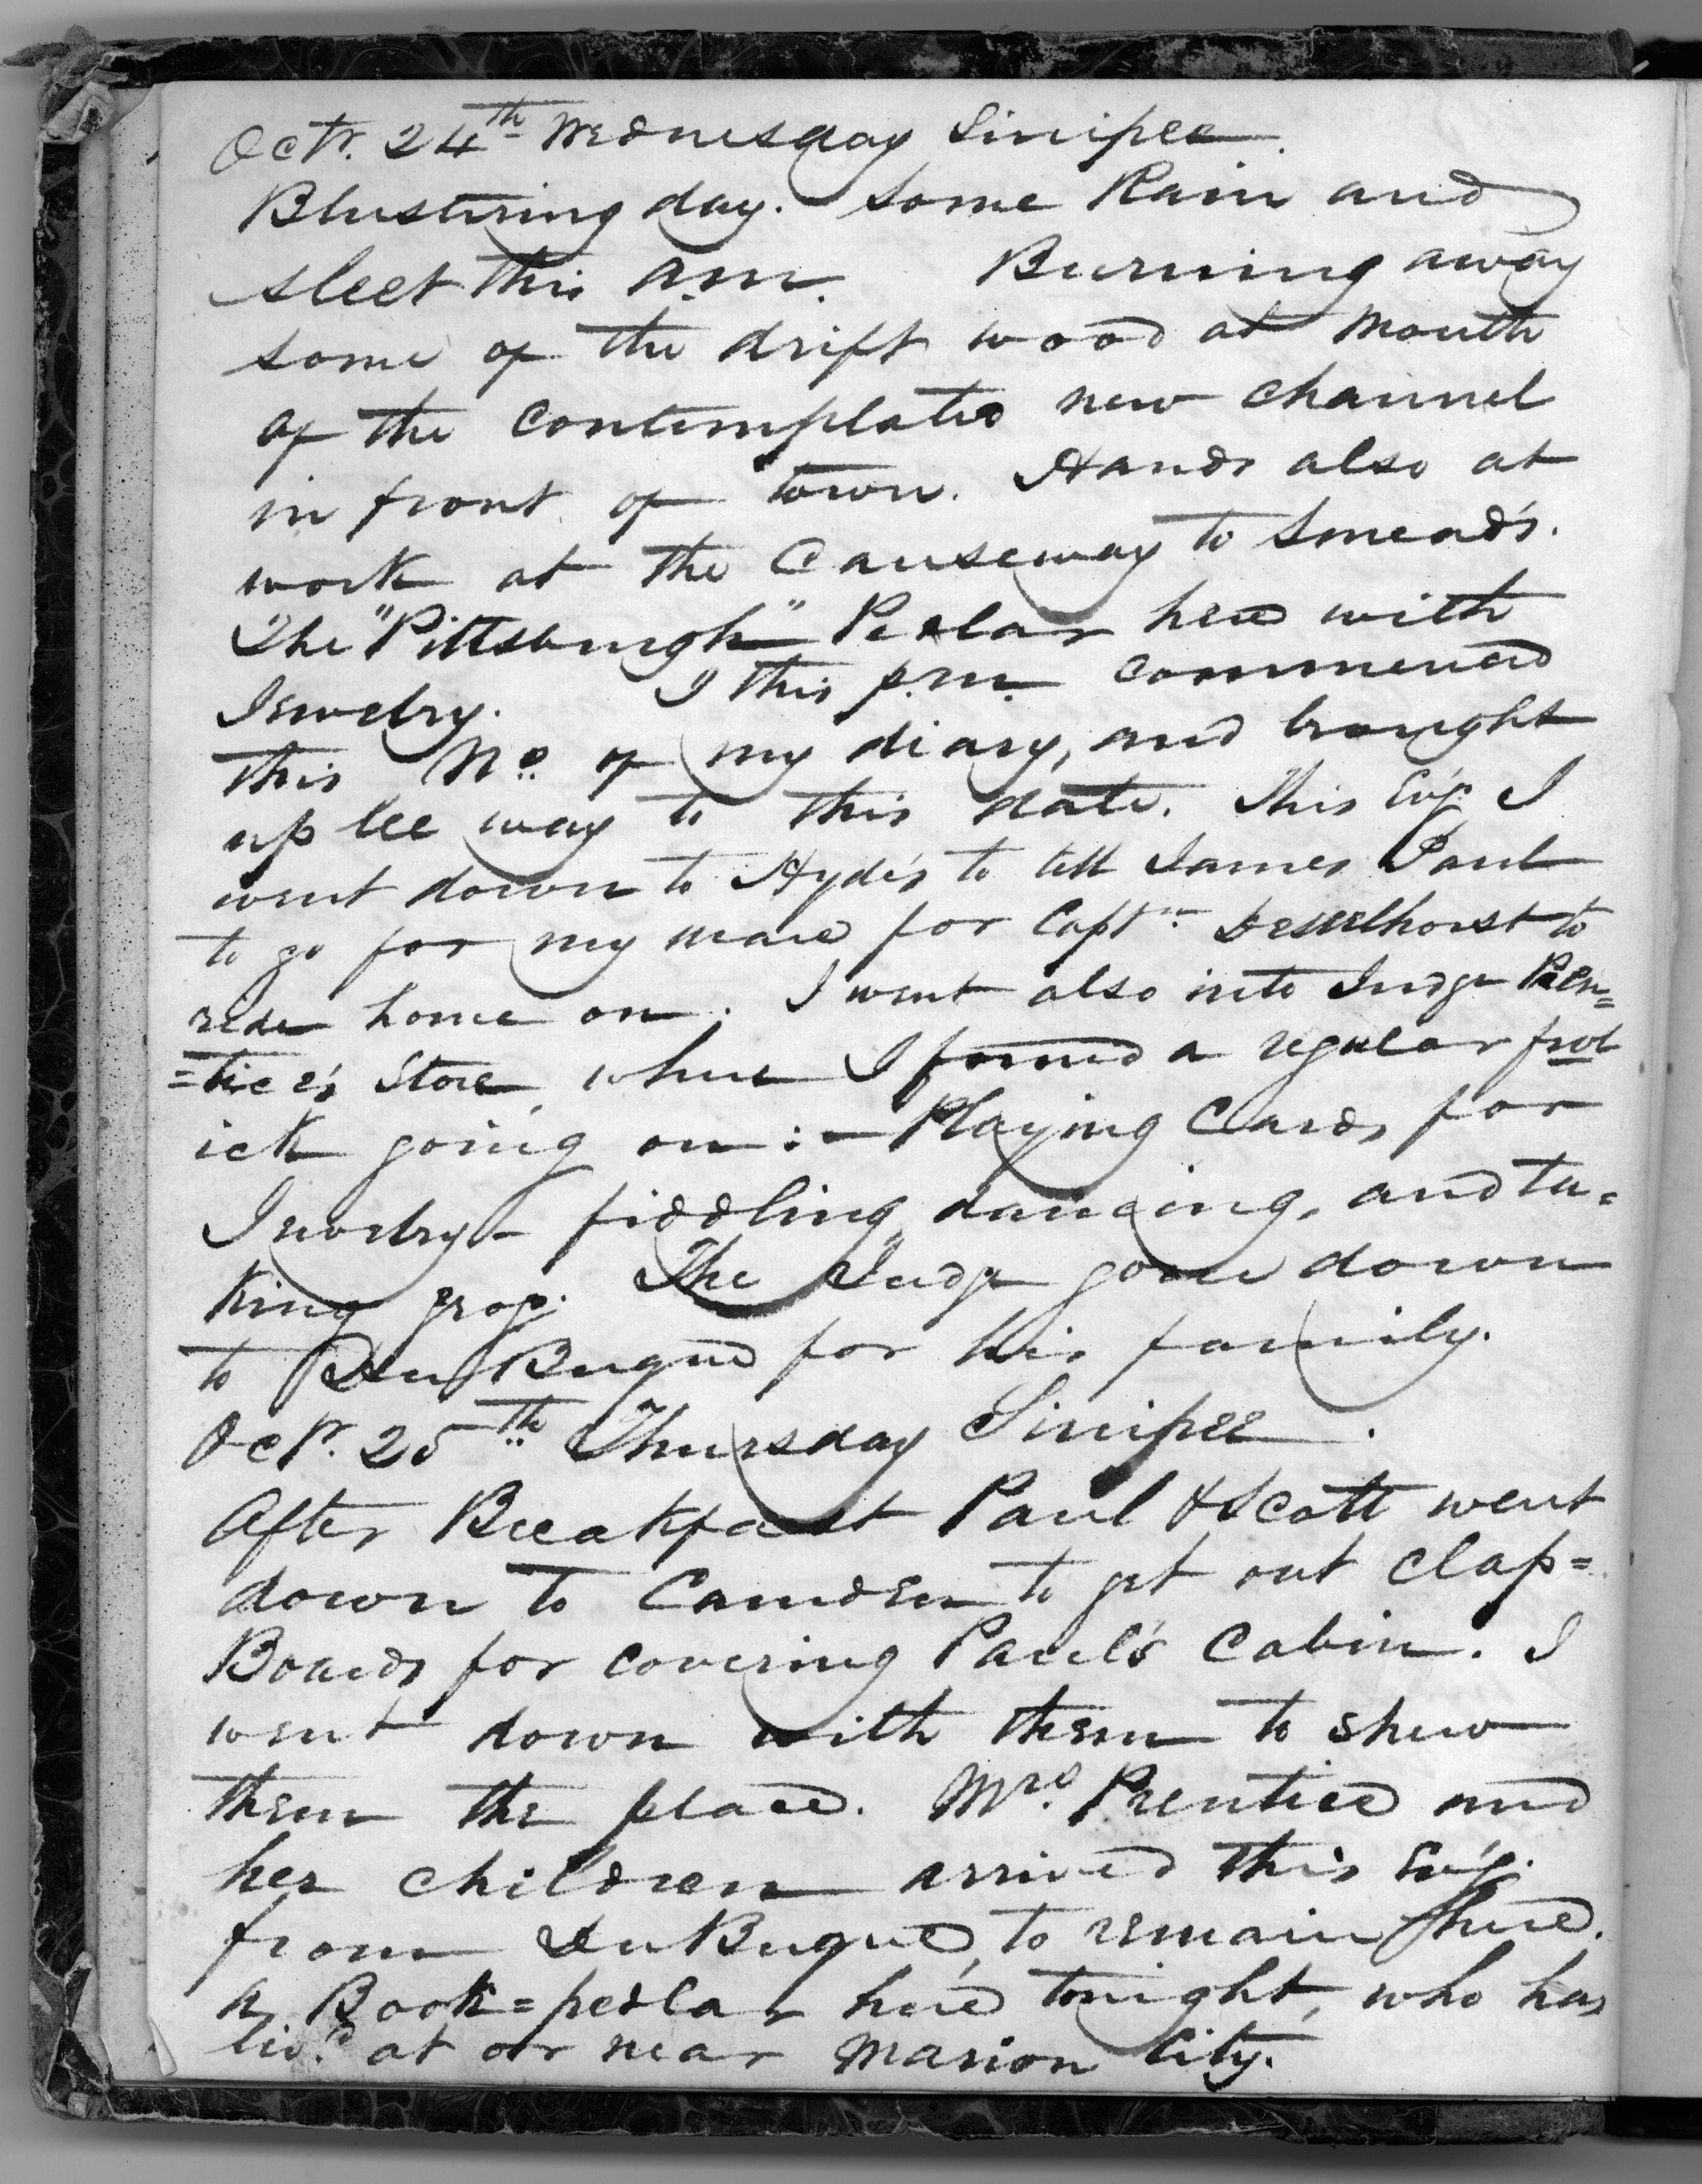 Octr. 24th Wednesday Sinipee.
Blustering day. Some Rain and
sleet this a.m. Burning away
some of the drift wood at mouth
of the contemplated new channel
in front of town. Hands also at
work at the Causeway to Smead's.
The "Pittsburgh" Pedlar here with
Jewelry. I this p.m. commenced
this No. of my diary, and brought
up lee way to this date. This Ev'g. I
went down to Hyde's to tell James Paul
to go for my mare for Captn. to
ride home on. I went also into Judge Pren=
=tice's Store, where I found a regular frol
ick going on :— Playing Cards for
Jewelry - fiddling, dancing, and ta=
king grog. The Judge gone down
to Du Buque for his family.
Octr. 25th Thursday Sinipee.
After Breakfast Paul & Scott went
down to Camden to get out clap=
Boards for covering Paul's Cabin. I
went down with them to shew
them the place. Mrs. Prentice and
her children arrived this Ev'g.
from DuBuque, to remain here.
A Book=pedlar here tonight, who has
liv'd at or near Marion City.